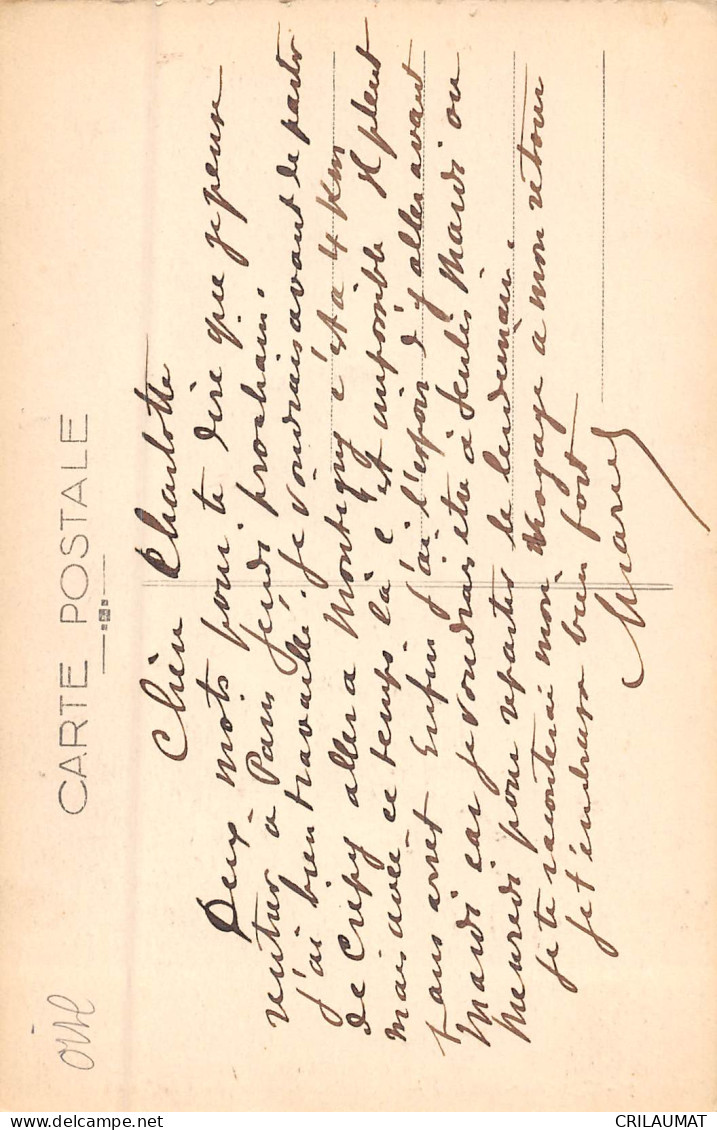 CARTE POSTALE
oise
Chère Charlotte
Deux mots pour te dire que je pense
rentrer à Paris jeudi prochain.
j'ai bien travaillé. je voudrais avant de partir
de Crépy aller a Montigny c'est a 4 Km
mais avec ce temps là c'est impossible il pleut
sans arret Enfin j'ai l'espoir d'y aller avant
Mardi car je voudrais etre à Senlis Mardi ou
Mercredi pour repartir le lendemain.
je te raconterai mon voyage a mon retour
je t'embrasse bien fort
Marcel
CRILAUMAT